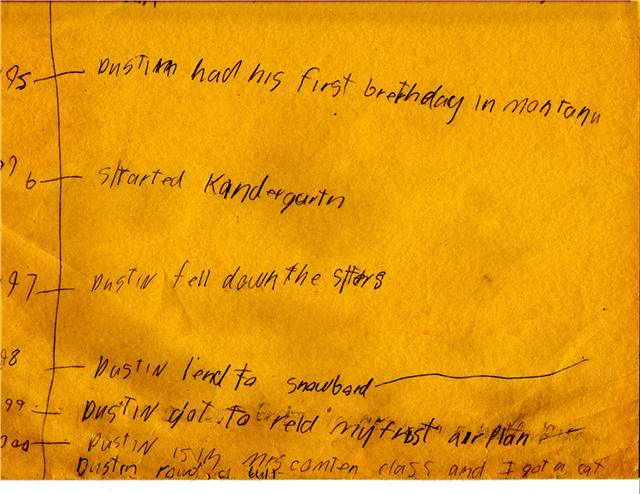 95 Dustin had his first brethday in montanu
96 Started Kandergartn
97 Dustin fell down the stars
98 Dustin lend to snowbord
99 Dustin got to reid my frist air plan
Dustin is in mrs camten class and I got a cat
Dustin